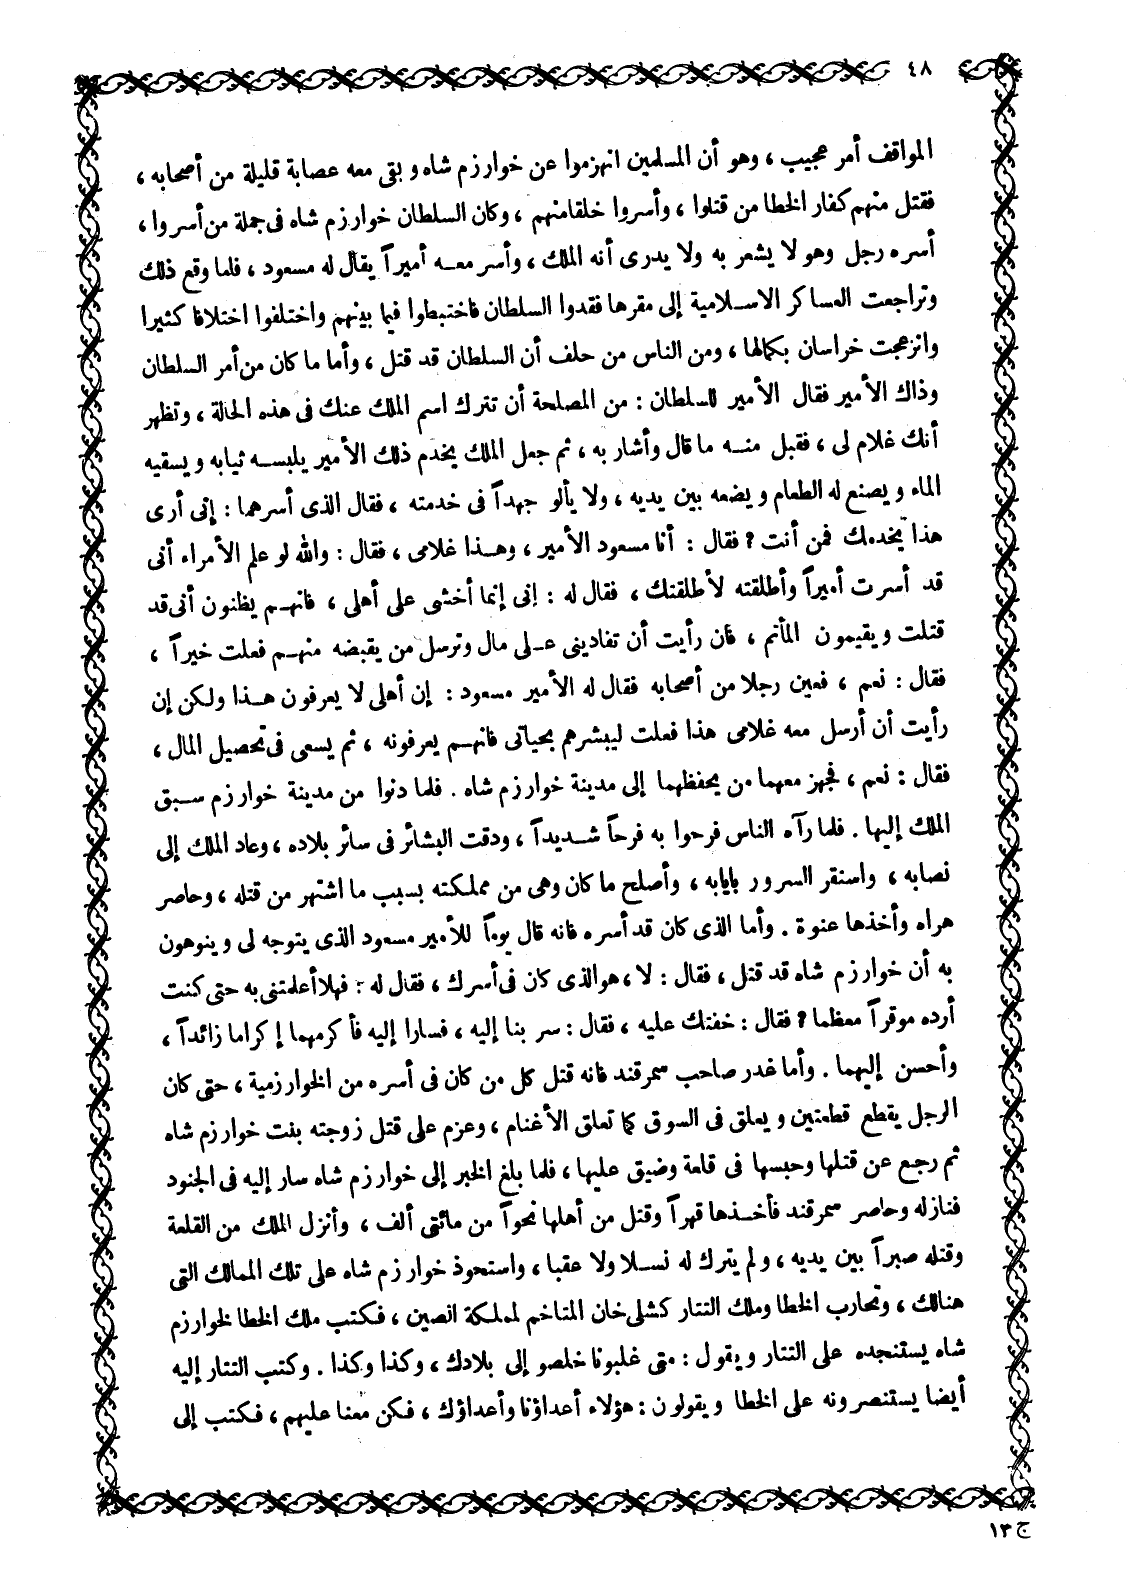 ٤٨
المواقف أمر عجيب ، وهو أن المسلمين انهزموا عن خوارزم شاه وبقى معه عصابة قليلة من أصحابه ،
فقتل منهم كفار الخطا من قتلوا ، وأسروا خلقا منهم ، وكان السلطان خوارزم شاه فى جملة من أسروا ،
أسره رجل وهو لا يشعر به ولا يدرى أنه الملك ، وأسر معه أميراً يقال له مسعود ، فلما وقع ذلك
وتراجعت العساكر الاسلامية إلى مقرها فقدوا السلطان فاختبطوا فيما بينهم واختلفوا اختلافا كثيرا
وانزعجت خراسان بكمالها ، ومن الناس من حلف أن السلطان قد قتل ، وأما ما كان من أمر السلطان
وذاك الأمير فقال الأمير للسلطان : من المصلحة أن تترك اسم الملك عنك فى هذه الحالة ، وتظهر
أنك غلام لى ، فقبل منه ما قال وأشار به ، ثم جعل الملك يخدم ذلك الأمير يلبسه ثيابه ويسقيه
الماء ويصنع له الطعام ويضعه بين يديه ، ولا يألو جهداً فى خدمته ، فقال الذى أسرهما : إنى أرى
هذا يخدمك فمن أنت ؟ فقال : أنا مسعود الأمير ، وهذا غلامى ، فقال : والله لو علم الأمراء أنى
قد أسرت أميراً وأطلقته لأطلقتك ، فقال له : إنى إنما أخشى على أهلى ، فانهم يظنون أنى قد
قتلت ويقيمون المأتم ، فان رأيت أن تفادينى على مال وترسل من يقبضه منهم فعلت خيراً ،
فقال : نعم ، فعين رجلا من أصحابه فقال له الأمير مسعود : إن أهلى لا يعرفون هذا ولكن إن
رأيت أن أرسل معه غلامى هذا فعلت ليبشرهم بحياتى فانهم يعرفونه ، ثم يسعى فى تحصيل المال ،
فقال : نعم ، فجهز معهما من يحفظهما إلى مدينة خوارزم شاه . فلما دنوا من مدينة خوارزم سبق
الملك إليها . فلما رآه الناس فرحوا به فرحاً شديداً ، ودقت البشائر فى سائر بلاده ، وعاد الملك إلى
نصابه ، واستقر السرور بايابه ، وأصلح ما كان وهى من مملكته بسبب ما اشتهر من قتله ، وحاصر
هراه وأخذها عنوة . وأما الذى كان قد أسره فانه قال يوماً للأمير مسعود الذى يتوجه لى وينوهون
به أن خوارزم شاه قد قتل ، فقال : لا ، هو الذى كان فى أسرك ، فقال له : فهلا أعلمتنى به حتى كنت
أرده موقراً معظما ؟ فقال : خفتك عليه ، فقال : سر بنا إليه ، فسارا إليه فأكرمهما إكراما زائداً ،
وأحسن إليهما . وأما غدر صاحب سمرقند فانه قتل كل من كان فى أسره من الخوارزمية ، حتى كان
الرجل يقطع قطعتين ويعلق فى السوق كما تعلق الأغنام ، وعزم على قتل زوجته بنت خوارزم شاه
ثم رجع عن قتلها وحبسها فى قلعة وضيق عليها ، فلما بلغ الخبر إلى خوارزم شاه سار إليه فى الجنود
فنازله وحاصر سمرقند فأخذها قهراً وقتل من أهلها نحواً من مائتى ألف ، وأنزل الملك من القلعة
وقتله صبراً بين يديه ، ولم يترك له نسلا ولا عقبا ، واستحوذ خوارزم شاه على تلك الممالك التى
هنالك ، وتحارب الخطا وملك التتار كشلى خان المتاخم لمملكة الصين ، فكتب ملك الخطا لخوارزم
شاه يستنجده على التتار ويقول : متى غلبونا خلصو إلى بلادك ، وكذا وكذا . وكتب التتار إليه
أيضا يستنصرونه على الخطا ويقولون : هؤلاء أعداؤنا وأعداؤك ، فكن معنا عليهم ، فكتب إلى
ج ١٣